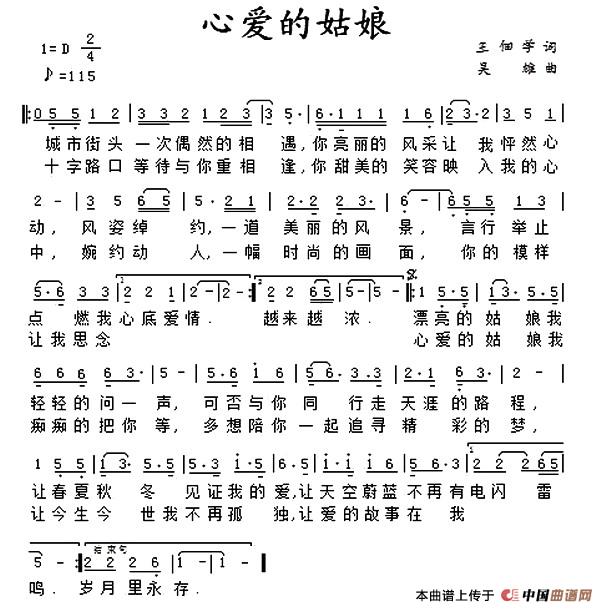 心爱的姑娘
1=D 2/4
♪=115
王佃学 词
吴雄 曲
0 5 5 1 2 | 3 3 2 1 2 3 2 | 3 5· 5 | 6·1 1 1 | 6 5 | 2 1 2 3 2
城市街头 一次偶然的相 遇,你亮丽的 风采让 我怦然心
十字路口 等待与你重相 逢,你甜美的 笑容映 入我的心
2 - | 3 5 6 5 | 5· 2 1 | 2·2 3·2 | 6 - | 6 5 5·3
动, 风姿绰 约,一道 美丽的风 景, 言行 举止
中, 婉约动 人,一幅 时尚的画 面, 你的 模样
5·6 3 3 | 2 2 1 | 2 1· | 2 - | 2 2 6 5 | 5· | 5 - | 1 5·5 | 5·3 3 1
点 燃我心底爱情. 越来越 浓. 漂亮的 姑 娘我
让我思念 心爱的 姑 娘我
6 6 6 1·3 | 5 - | 5 1 6 3·1 | 2 5· | 6 5 3 2 3 | 1·6 3 | 2 -
轻轻的问一 声, 可否与你 同 行走 天涯 的 路 程,
痴痴的把你 等, 多想陪你 一起追寻 精 彩的 梦,
1 5 5 | 1 3· | 5 3 | 5·5 5 6 | 1 5 6 | 1·1 2 1 | 6·1 2 3 | 2 6 5
让春夏秋 冬 见证我的 爱,让天空蔚蓝 不再有 电闪 雷
让今生今 世我 不再孤 独,让爱的故事在 我
5 - | 2 2 2 2 3 | 1· | 1 -
鸣. 岁月里永存.
结束句
本曲谱上传于 中国曲谱网